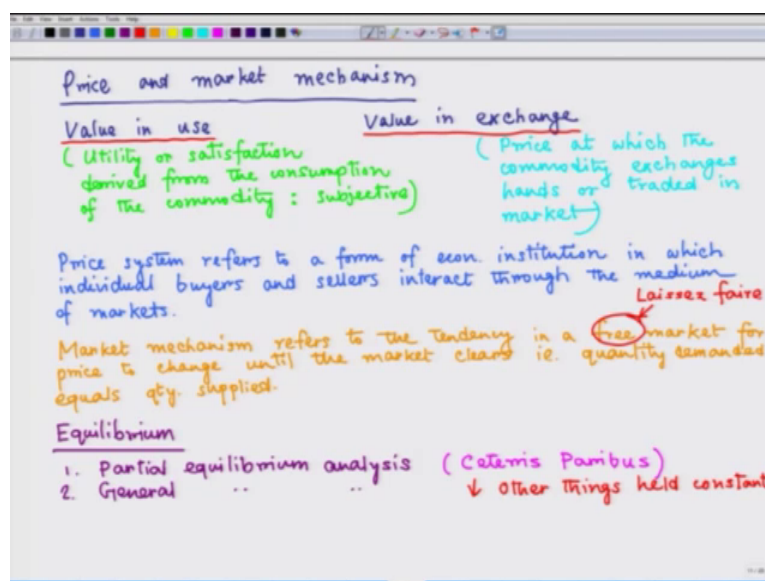 Price and market mechanism
Value in use Value in exchange
(Utility or satisfaction
derived from the consumption
of the commodity : subjective)
(Price at which the
commodity exchanges
hands or traded in
market)
Price system refers to a form of econ. institution in which
individual buyers and sellers interact through the medium
of markets.
Laissez faire
Market mechanism refers to the Tendency in a free market for
price to change until the market clears ie. quantity demanded
equals qty. supplied.
Equilibrium
1. Partial equilibrium analysis (Ceteris Paribus)
2. General " " ↓ Other Things held constant